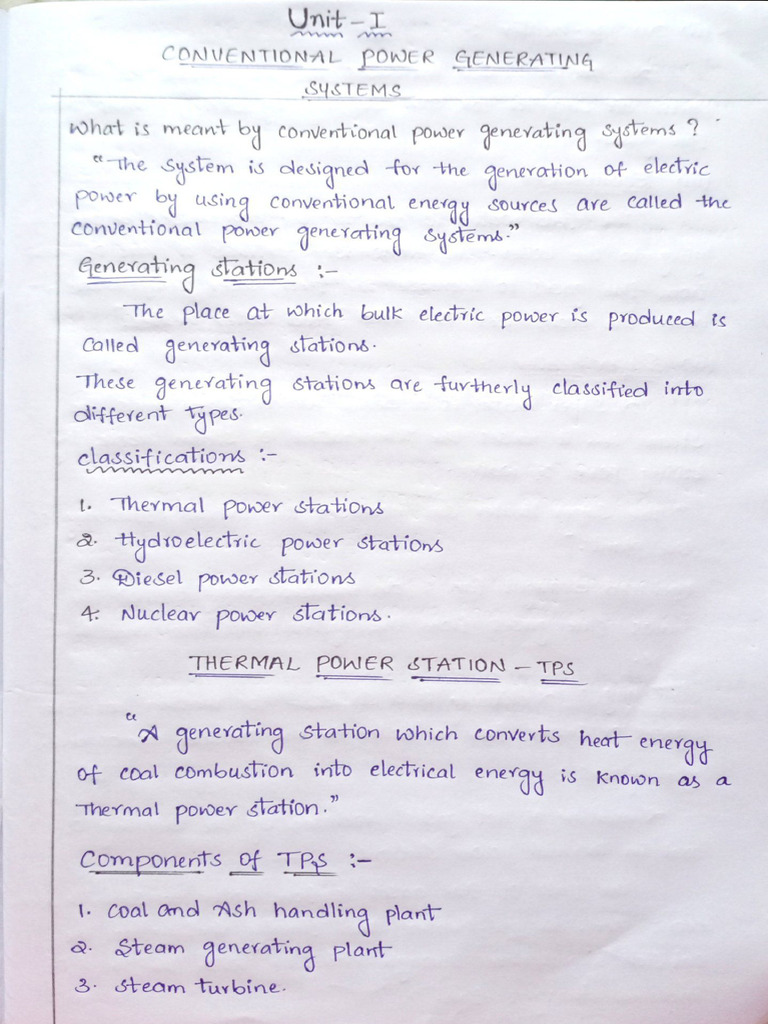 Unit - I
CONVENTIONAL POWER GENERATING
SYSTEMS
What is meant by conventional power generating systems ?
"The system is designed for the generation of electric
power by using conventional energy sources are called the
conventional power generating systems."
Generating stations :-
The place at which bulk electric power is produced is
called generating stations.
These generating stations are furtherly classified into
different types.
classifications :-
1. Thermal power stations
2. Hydroelectric power stations
3. Diesel power stations
4. Nuclear power stations.
THERMAL POWER STATION - TPS
"A generating station which converts heat energy
of coal combustion into electrical energy is known as a
Thermal power station."
Components of TPS :-
1. Coal and Ash handling plant
2. Steam generating plant
3. Steam turbine.